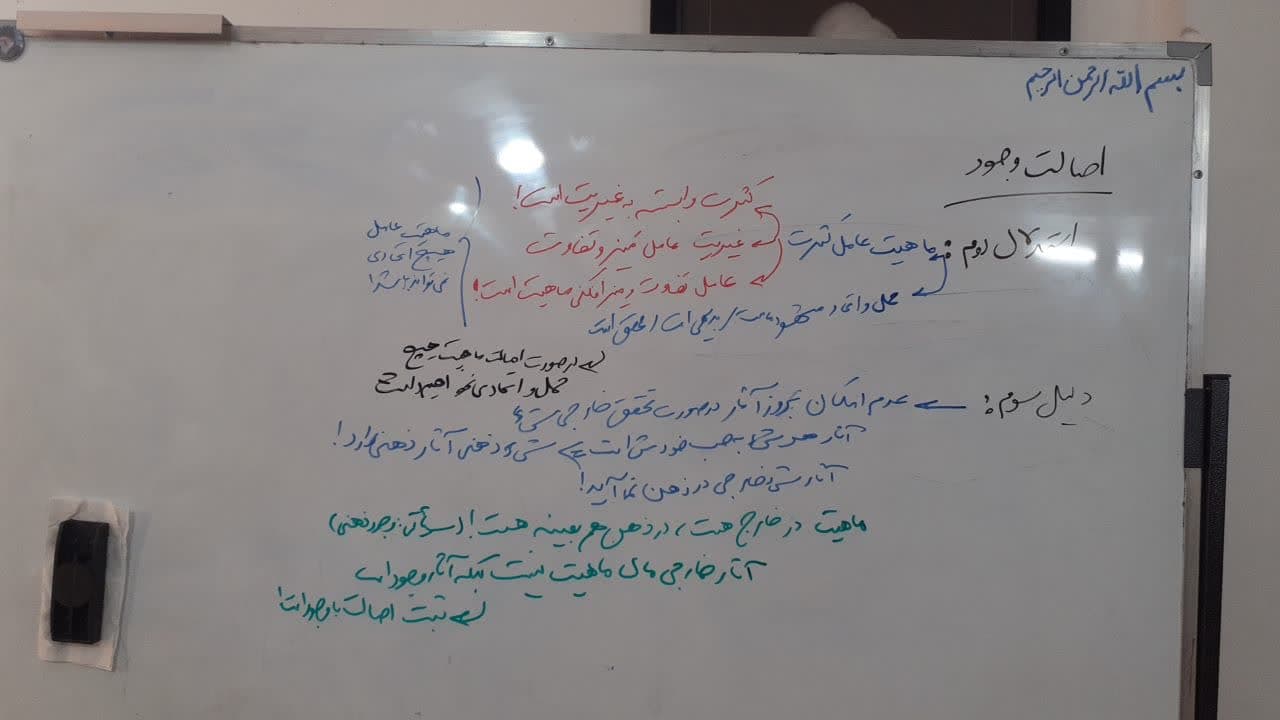 بسم الله الرحمن الرحیم
اصالت وجود
استدلال دوم: ماهیت عامل کثرت
کثرت وابسته به غیریت است!
غیریت عامل تمیز و تفاوت
عامل تفاوت و تمیز افکنی ماهیت است!
حمل و اتحاد مشهود ماست / بدیهی است / محقق است
ماهیت عامل
هیچ اتحادی
نمی‌تواند باشد!
در صورت اصالت ماهیت هیچ
حمل و اتحادی نخواهیم داشت
دلیل سوم: عدم امکان بروز آثار در صورت تحقق خارجی شیء
آثار هر شیء به حسب خودش است شیء ذهنی آثار ذهنی دارد!
آثار شیء خارجی در ذهن نمی‌آید!
ماهیت در خارج هست، در ذهن هم بعینه هست! (سیأتی: وجود ذهنی)
آثار خارجی مال ماهیت نیست بلکه آثار وجود است
ثبت اصالت با وجود است!